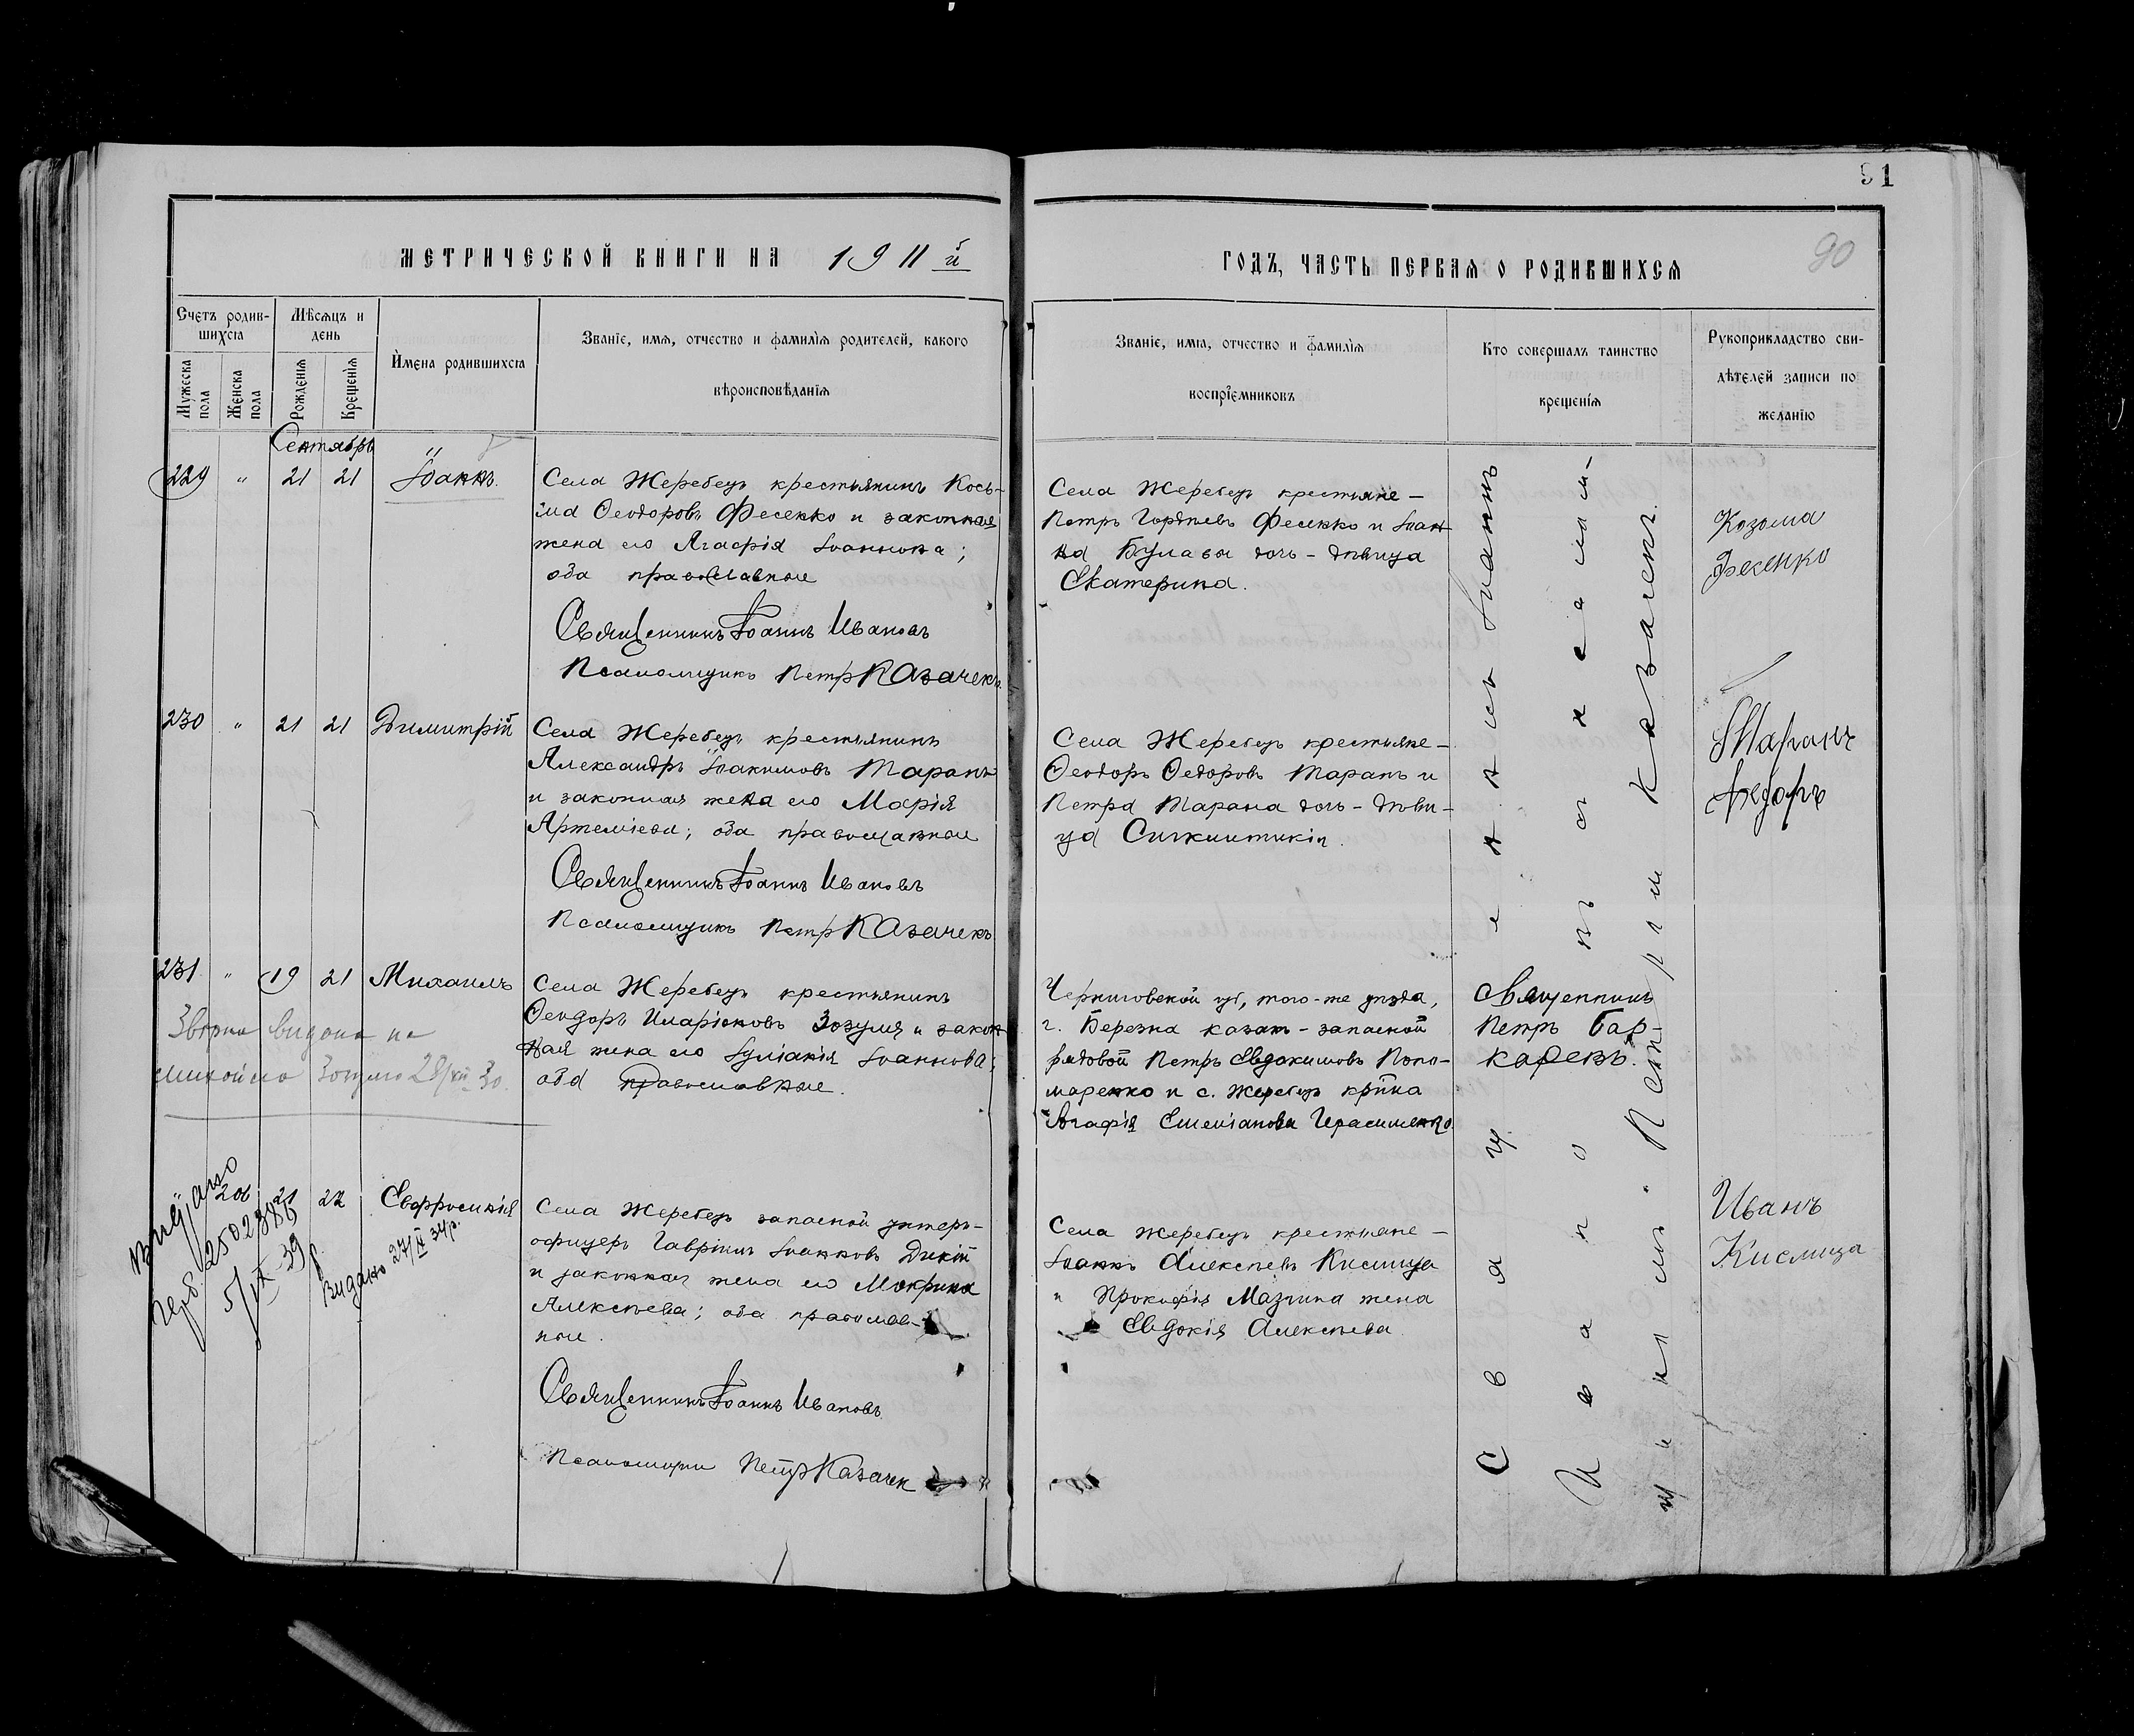 91
90
МЕТРИЧЕСКОЙ КНИГИ НА 1911й
ГОДЪ, ЧАСТЬ ПЕРВАЯ О РОДИВШИХСЯ
Счетъ родив-
шихся
Мѣсяцъ и
день
Мужеска
пола
Женска
пола
Рожденія
Крещенія
Имена родившихся
Званіе, имя, отчество и фамилія родителей, какого
вѣроисповѣданія
Званіе, имя, отчество и фамилія
воспріемниковъ
Кто совершалъ таинство
крещенія
Рукоприкладство сви-
дѣтелей записи по
желанію
Сентябрь
229 " 21 21 Іоаннъ.
Села Жеребецъ крестьянинъ Кось-
ма Ѳеодоровъ Фесенко и законная
жена его Агафія Іоаннова;
оба православные
Священникъ Іоаннъ Ивановъ
Псаломщикъ Петръ Казачекъ
Села Жеребецъ крестьяне –
Петръ Гордѣевъ Фесенко и Іоан-
на Булавы дочь – дѣвица
Екатерина.
Козома
Фесенко
230 " 21 21 Димитрій
Села Жеребецъ крестьянинъ
Александръ Іоакимовъ Таранъ
и законная жена его Марія
Артеміева; оба православные
Священникъ Іоаннъ Ивановъ
Псаломщикъ Петръ Казачекъ
Села Жеребецъ крестьяне –
Ѳеодоръ Ѳедоровъ Таранъ и
Петра Тарана дочь – дѣви-
ца Синклитикія.
Таранъ
Федоръ
231 " 19 21 Михаилъ
Села Жеребецъ крестьянинъ
Ѳеодоръ Иларіоновъ Зозуля и закон-
ная жена его Іуліанія Іоаннова;
оба православные.
Черниговской губ, того-же уѣзда,
г. Березна казакъ – запасной
рядовой Петръ Евдокимовъ Поно-
маренко и с. Жеребецъ крнка
Агафія Емеліанова Герасименко.
Священникъ
Петръ Бар-
видано
Зозулю 28/XII 30.
20 21 22 Евфросинія
Видано
250
5/IX-39р.
Видано 27/IX 34р.
Села Жеребецъ запасной унтеръ-
офицеръ Гавріилъ Іоанновъ Дикій
и законная жена его Макрина
Алексѣева; оба православ-
ные.
Священникъ Іоаннъ Ивановъ
Псаломщикъ Петръ Казачек
Села Жеребецъ крестьяне –
Іоаннъ Алексѣевъ Кислица
" Прокофія Мазчина жена
Евдокія Алексѣева.
Иванъ
Кислица
Священникъ Іоаннъ
Ивановъ и псалом-
щикъ Петръ Казачекъ.